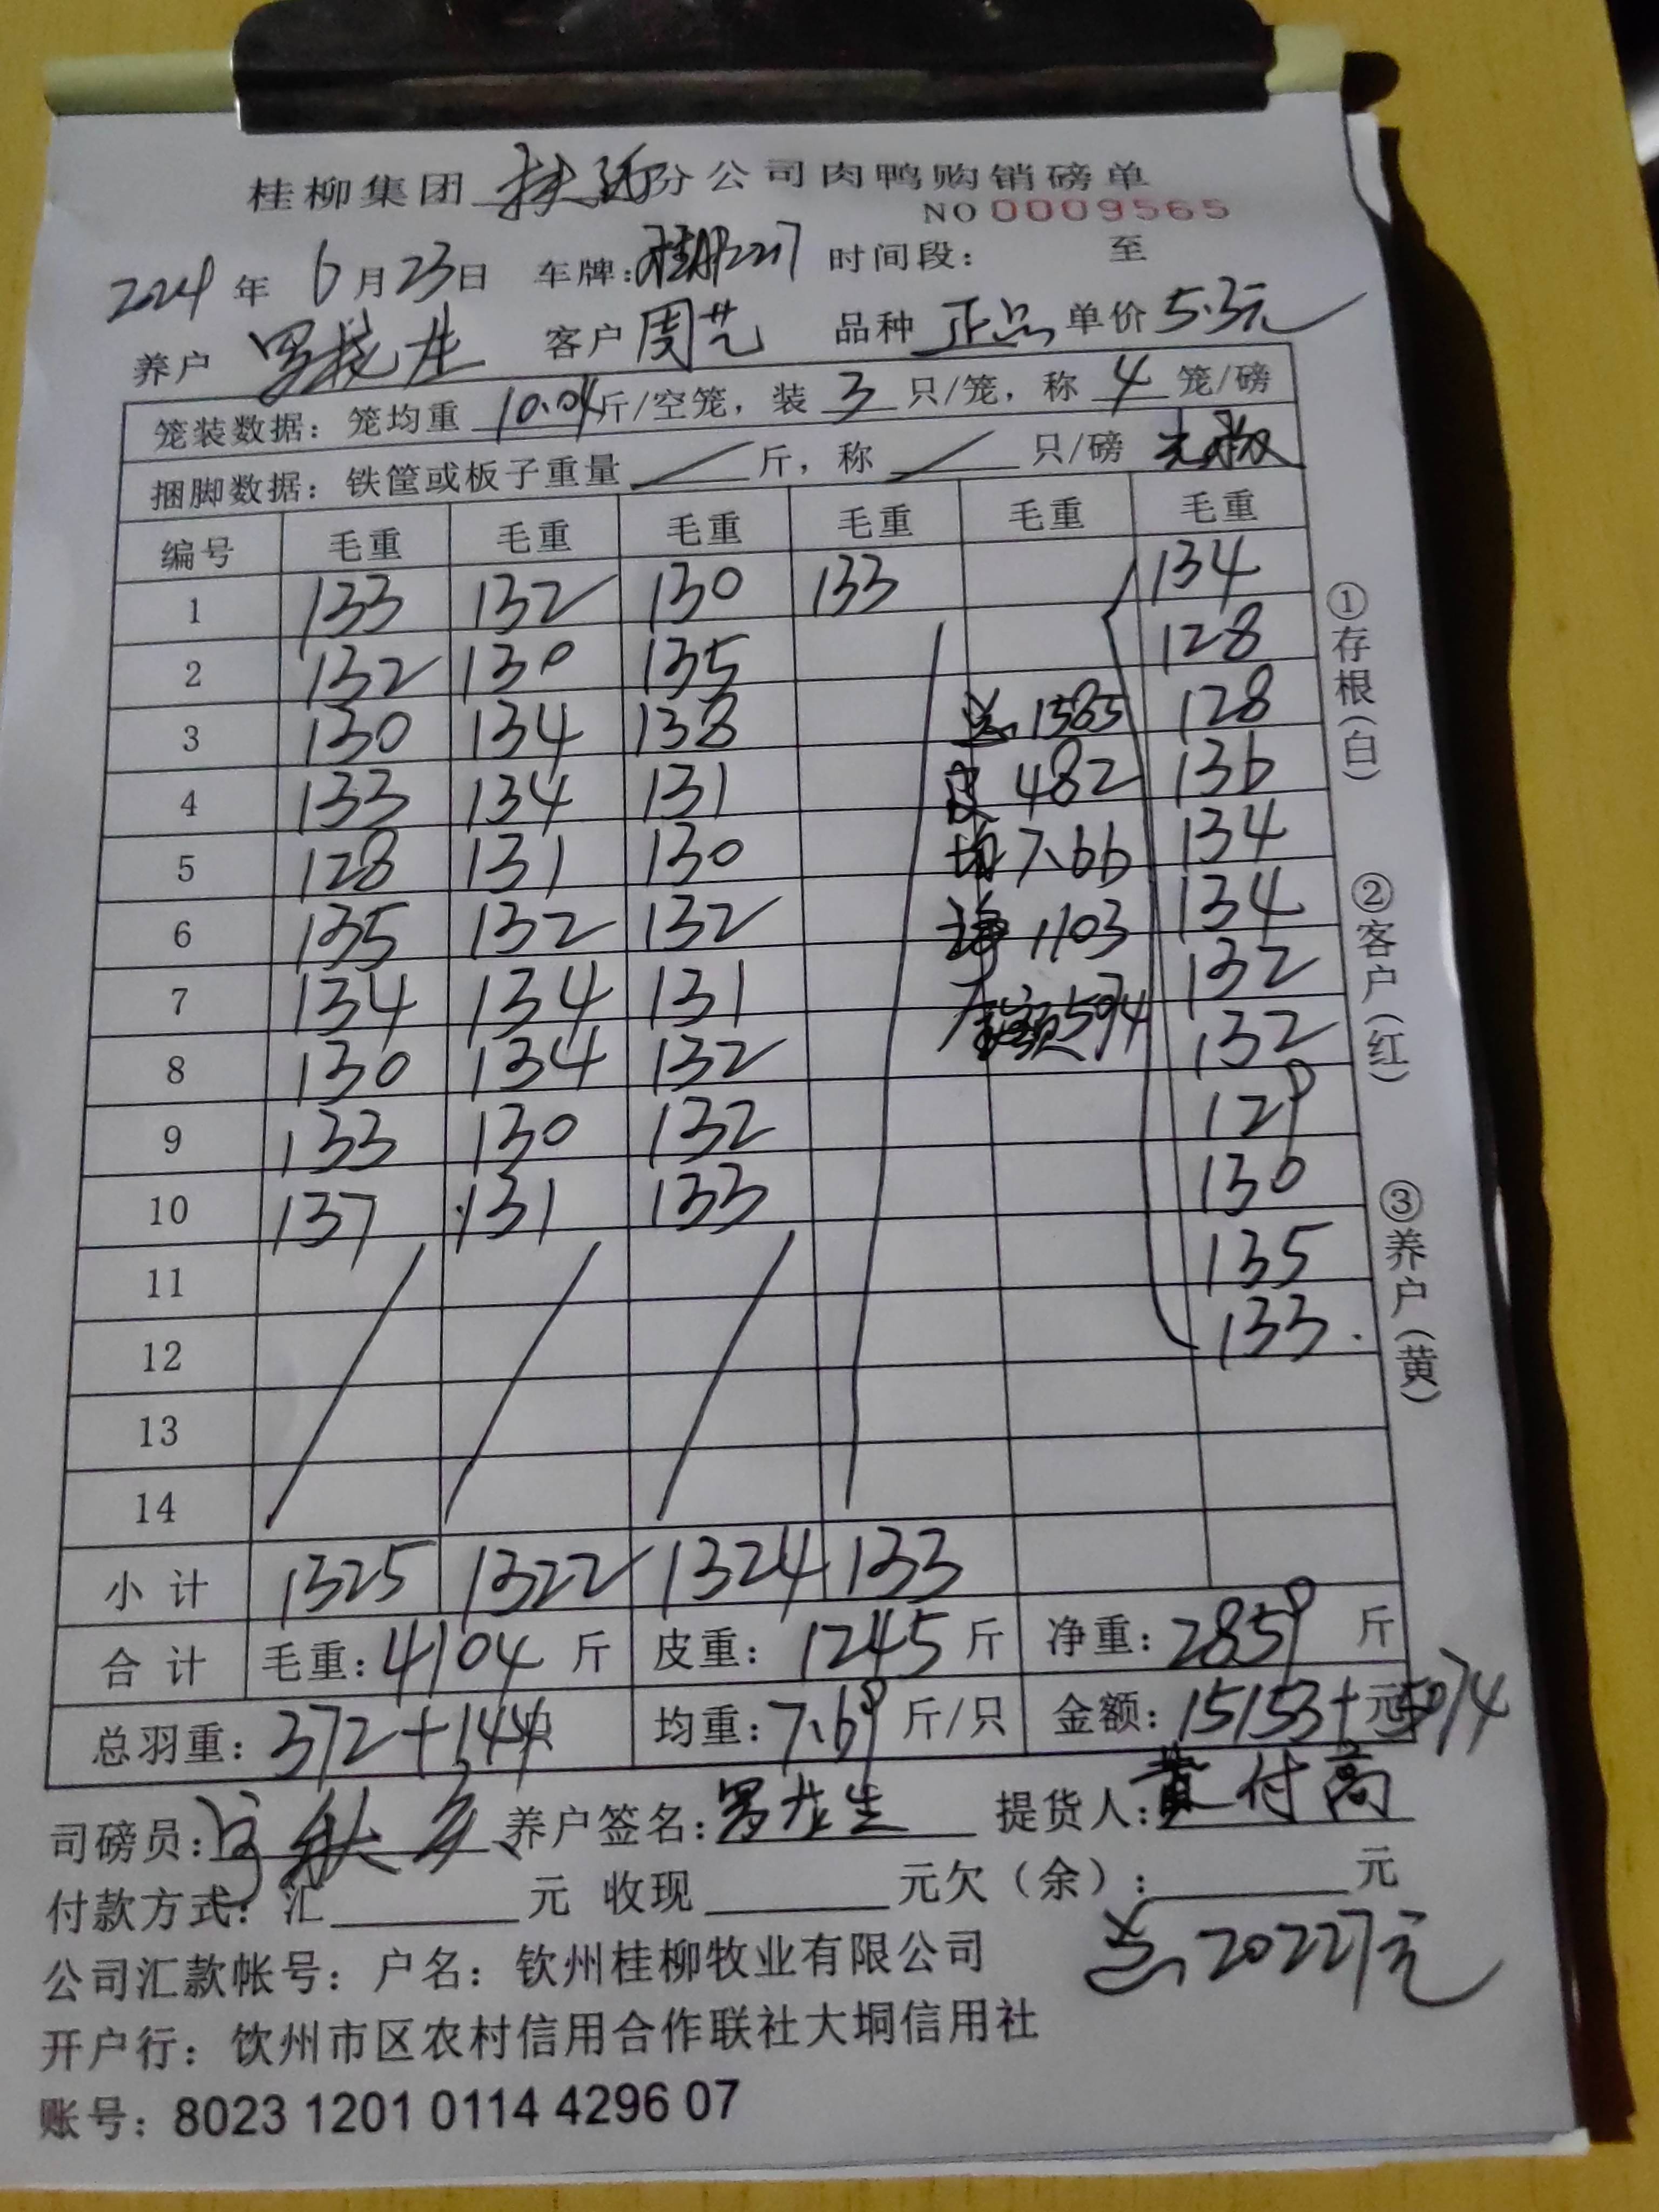 桂柳集团 扶绥分公司肉鸭购销磅单
NO 0009565
2024 年 6 月 23 日 车牌: 时间段: 至
养户 客户 周艺 品种 正品 单价 5.3元
笼装数据: 笼均重 10.04 斤/空笼, 装 3 只/笼, 称 4 笼/磅
捆脚数据: 铁筐或板子重量 / 斤, 称 / 只/磅
编号 毛重 毛重 毛重 毛重 毛重 毛重
1 133 132 130 133 134
2 132 130 135 128
3 130 134 138 总 1585 128
4 133 134 131 皮 482 136
5 128 131 130 均 7.66 134
6 135 132 132 净 1103 134
7 134 134 131 金额 5074 132
8 130 134 132 132
9 133 130 132 129
10 137 131 133 130
11 135
12 133
13
14
小计 1325 1322 1324 133
合计 毛重: 4104 斤 皮重: 1245 斤 净重: 2859 斤
总羽重: 372+144只 均重: 7.69 斤/只 金额: 15153+元5074
司磅员: 养户签名: 提货人: 黄付高
付款方式: 汇 元 收现 元欠(余): 元
总 20227元
公司汇款帐号: 户名: 钦州桂柳牧业有限公司
开户行: 饮州市区农村信用合作联社大垌信用社
账号: 8023 1201 0114 4296 07
①存根(白)
②客户(红)
③养户(黄)